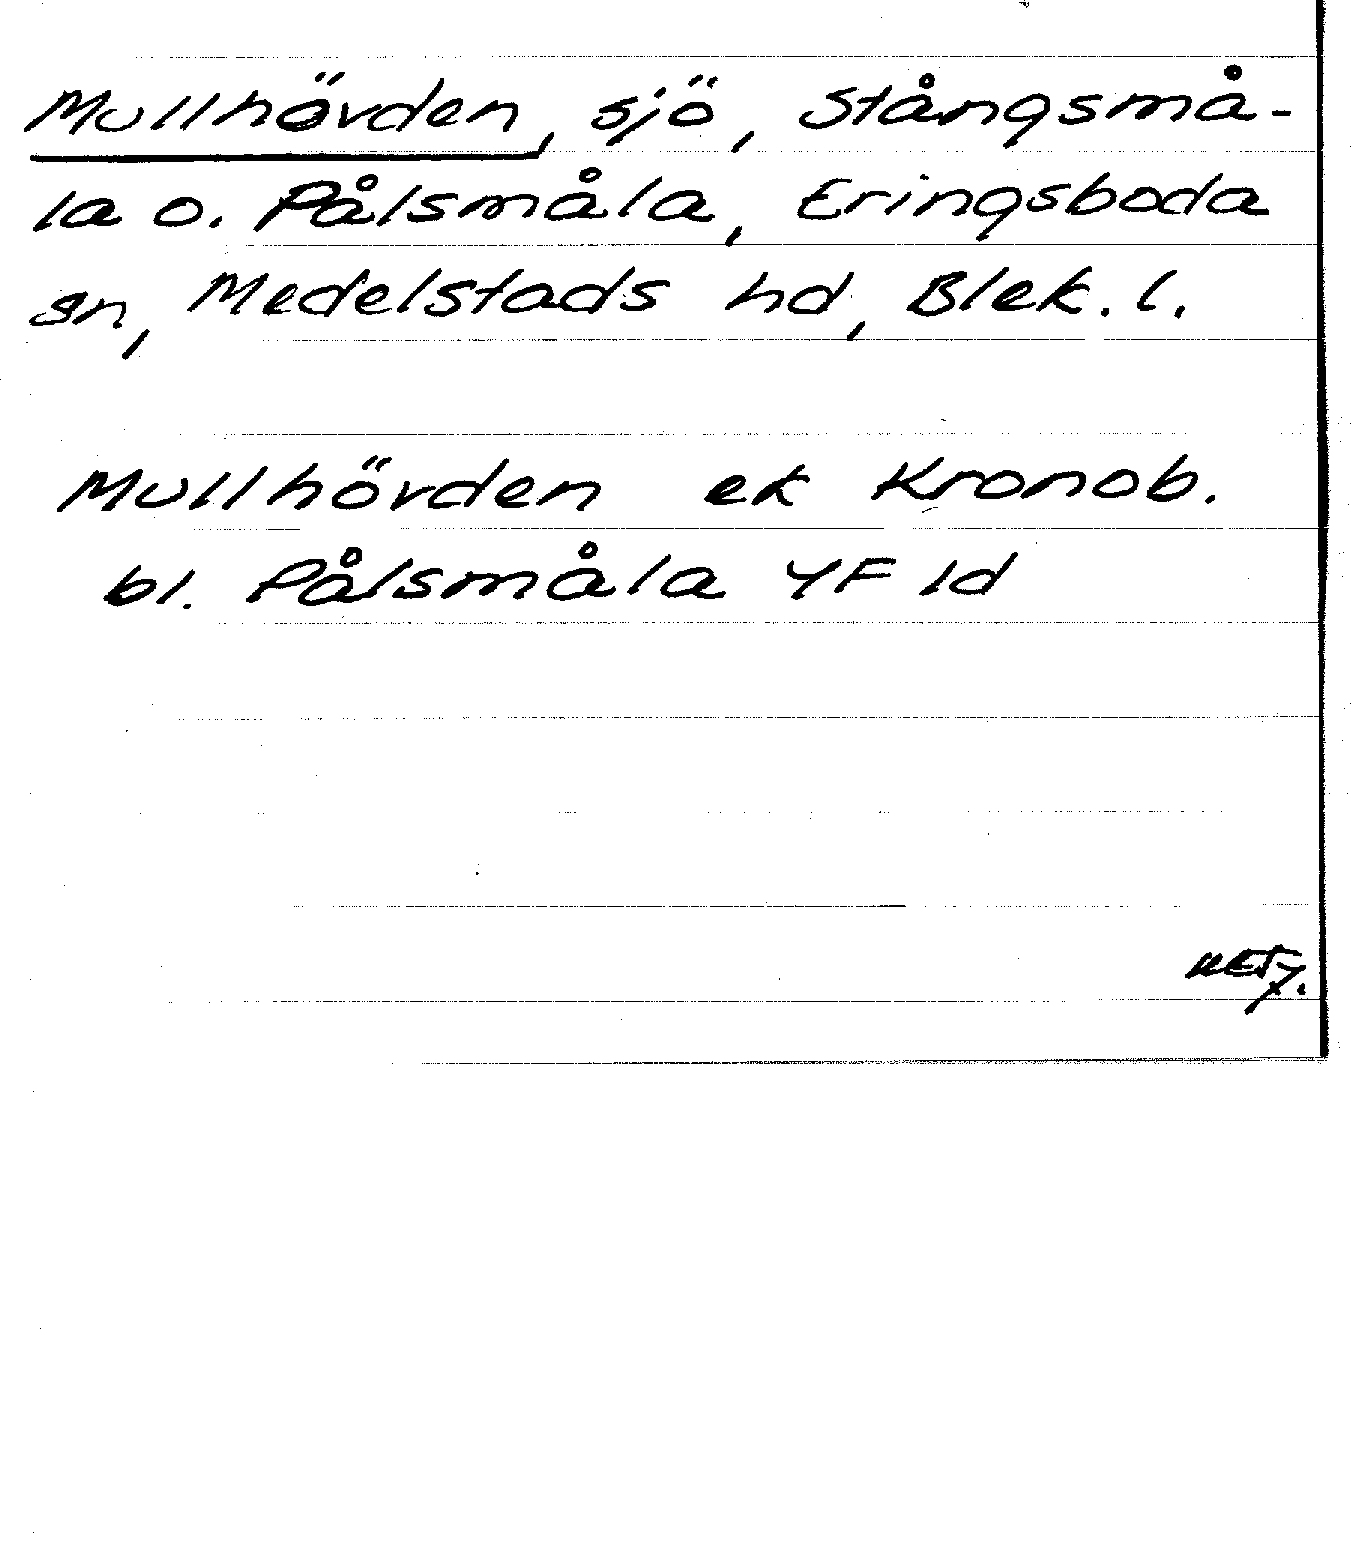 Mullhövden, sjö, Stångsmå-
la o. Pålsmåla, Eringsboda
sn, Medelstads hd, Blek. l.
Mullhövden ek Kronob.
bl. Pålsmåla YF 1d